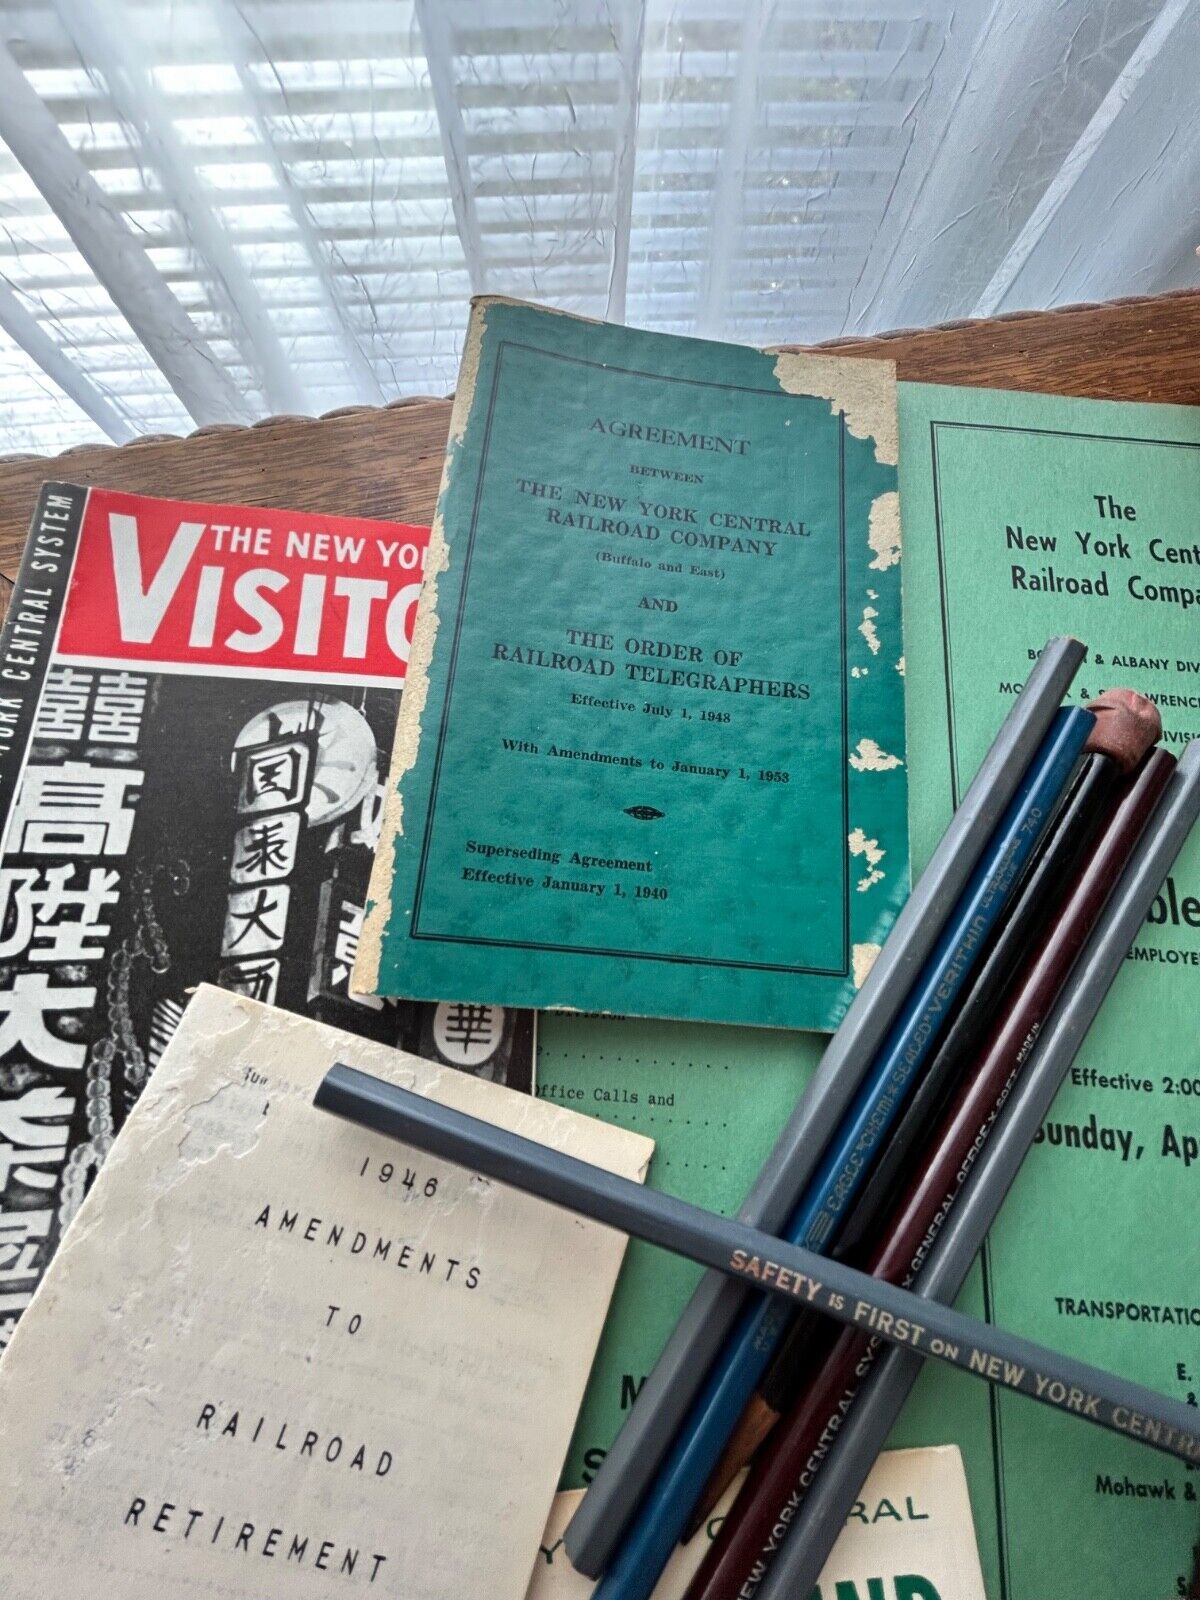 AGREEMENT
BETWEEN
THE NEW YORK CENTRAL
RAILROAD COMPANY
(Buffalo and East)
AND
THE ORDER OF
RAILROAD TELEGRAPHERS
Effective July 1, 1948
With Amendments to January 1, 1953
Superseding Agreement
Effective January 1, 1940
YORK CENTRAL SYSTEM
THE NEW YO
VISITO
囍囍
高陞大
國泰大
華
The
New York Cent
Railroad Compa
& ALBANY DIV
EMPLOYE
Effective 2:00
Sunday, Ap
TRANSPORTATIO
E.
&
Mohawk &
Division
Office Calls and
1946
AMENDMENTS
TO
RAILROAD
RETIREMENT
EAGLE "CHEMI * SEALED" VERITHIN
740
SAFETY IS FIRST ON NEW YORK CENTRAL
NEW YORK CENTRAL SYS
GENERAL OFFICE X SOFT MADE IN
RAL
AND